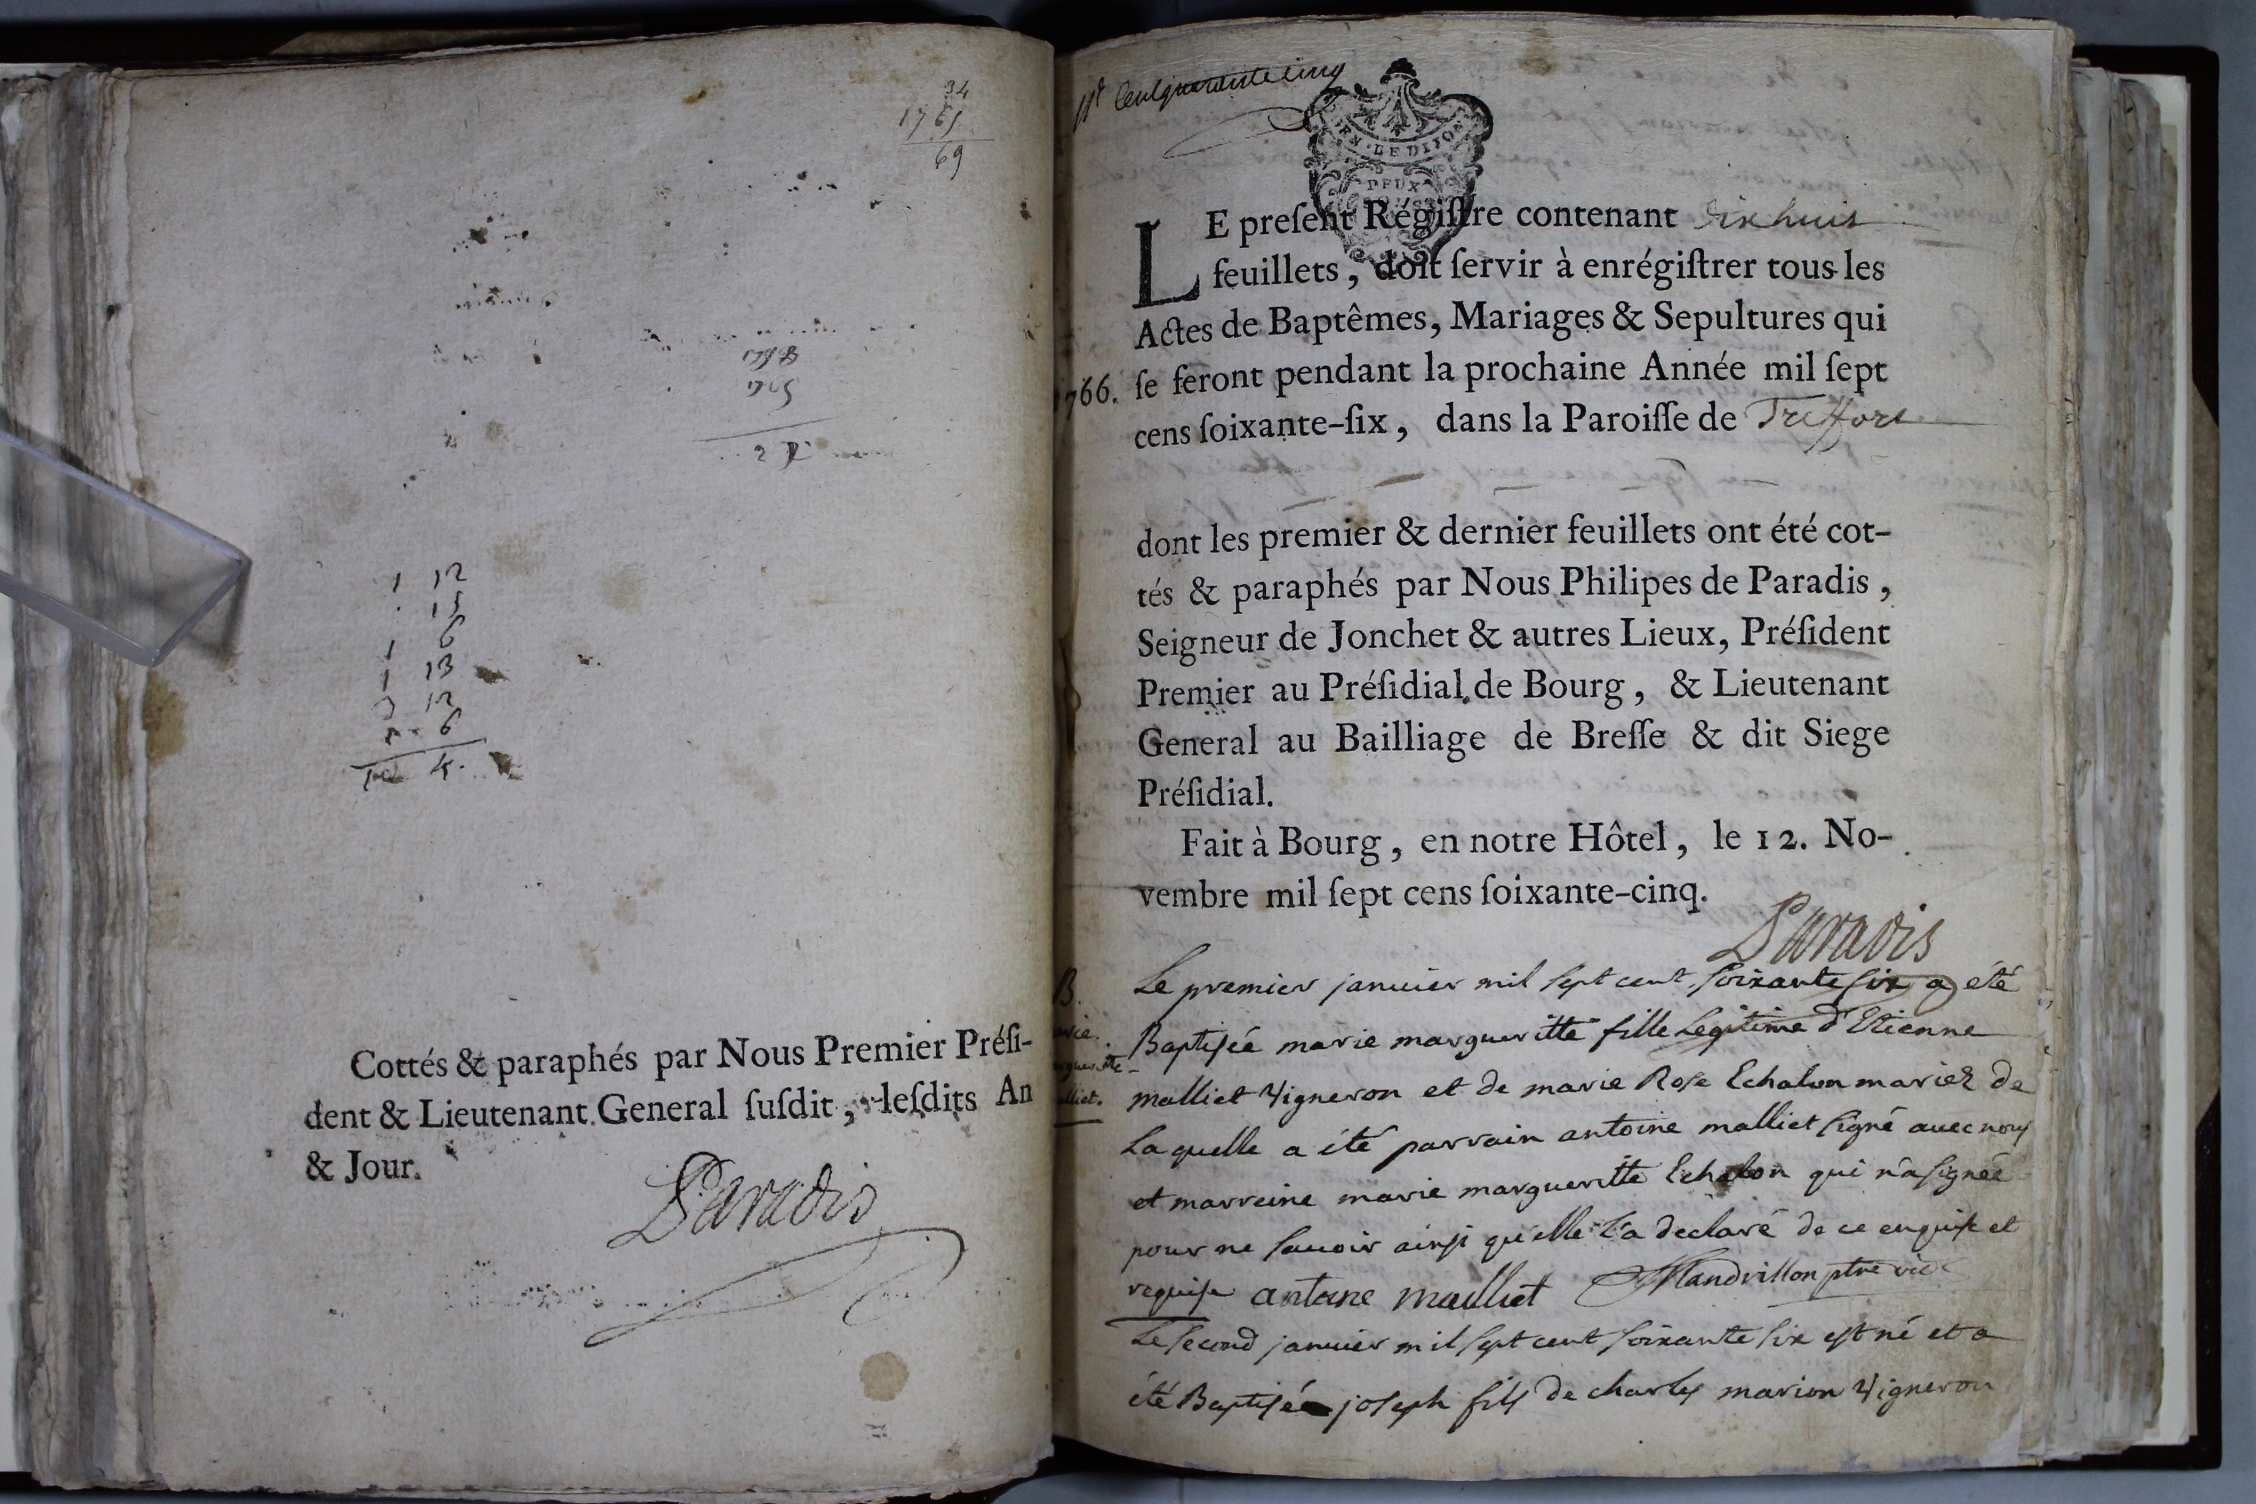 34
1765
69
1 12
. 15
1 6
1 13
3 12
6
Cottés & paraphés par Nous Premier Préſi-
dent & Lieutenant General ſuſdit, leſdits An
& Jour.
Paradis
Centquarante cinq
GEN. DE DIJON
DEUX
LE preſent Régiſtre contenant dix huit
feuillets, doit ſervir à enrégiſtrer tous les
Actes de Baptêmes, Mariages & Sepultures qui
1766. ſe feront pendant la prochaine Année mil ſept
cens ſoixante-ſix, dans la Paroiſſe de Treffort
dont les premier & dernier feuillets ont été cot-
tés & paraphés par Nous Philipes de Paradis,
Seigneur de Jonchet & autres Lieux, Préſident
Premier au Préſidial de Bourg, & Lieutenant
General au Bailliage de Breſſe & dit Siege
Préſidial.
Fait à Bourg, en notre Hôtel, le 12. No-
vembre mil ſept cens ſoixante-cinq.
Paradis
B. Le premier janvier mil sept cent soixante six a été
Baptisée marie margueritte fille Legitime d'Etienne
malliet Vigneron et de marie Rose Echalon mariez de
Laquelle a été parrain antoine malliet signé avec nous
et marreine marie margueritte Echalon qui n'a signée
pour ne sauoir ainsi qu'elle l'a declaré de ce enquise et
requise antoine malliet Mandrillon ptre vic
Le second janvier mil sept cent soixante six est né et a
été Baptisé joseph fils de charles marion Vigneron